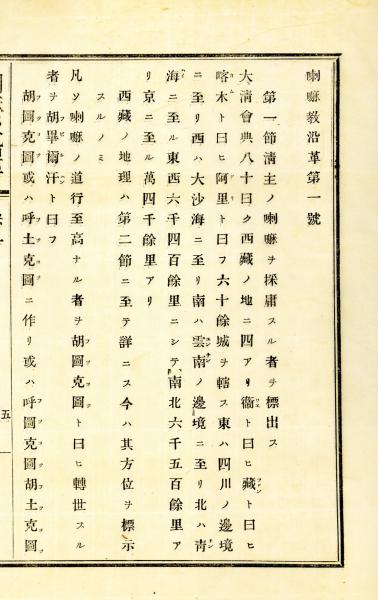 喇嘛教沿革第一號
第一節淸主ノ喇嘛ヲ採庸スル者ヲ標出ス
大淸會典八十曰ク西藏ノ地ニ四アリ衞ト曰ヒ藏ト曰ヒ
喀木ト曰ヒ阿里ト曰フ六十餘城ヲ轄ス東ハ四川ノ邊境
ニ至リ西ハ大沙海ニ至リ南ハ雲南ノ邊境ニ至リ北ハ靑
海ニ至ル東西六千四百餘里ニシテ南北六千五百餘里ア
リ京ニ至ル萬四千餘里アリ
西藏ノ地理ハ第二節ニ至テ詳ニス今ハ其方位ヲ標示
スルノミ
凡ソ喇嘛ノ道行至高ナル者ヲ胡圖克圖ト曰ヒ轉世スル
者ヲ胡畢爾汗ト曰フ
胡圖克圖或ハ呼土克圖ニ作リ或ハ呼圖克圖胡土克圖
五